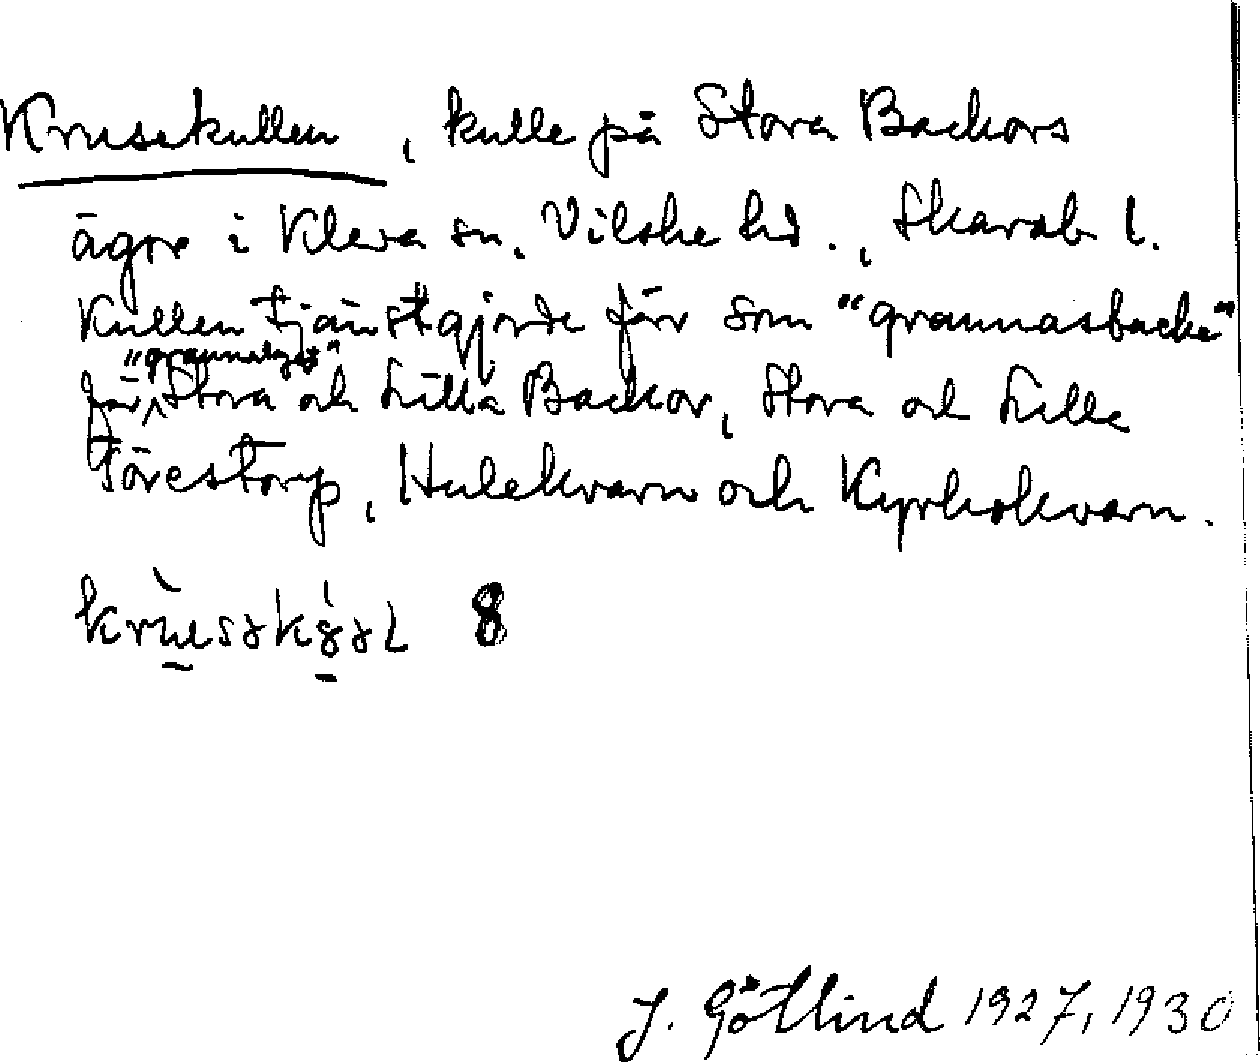 Krusekullen, kulle på Stora Backors
ägor i Kleva sn, Vilske hd., Skarab. l.
Kullen tjänstgjorde förr som "grannasbacke"
för "grannalaget" Stora och Lilla Backor, Stora och Lilla
Torestorp, Hulekvarn och Kyrkokvarn.
8
J. Götlind 1927, 1930